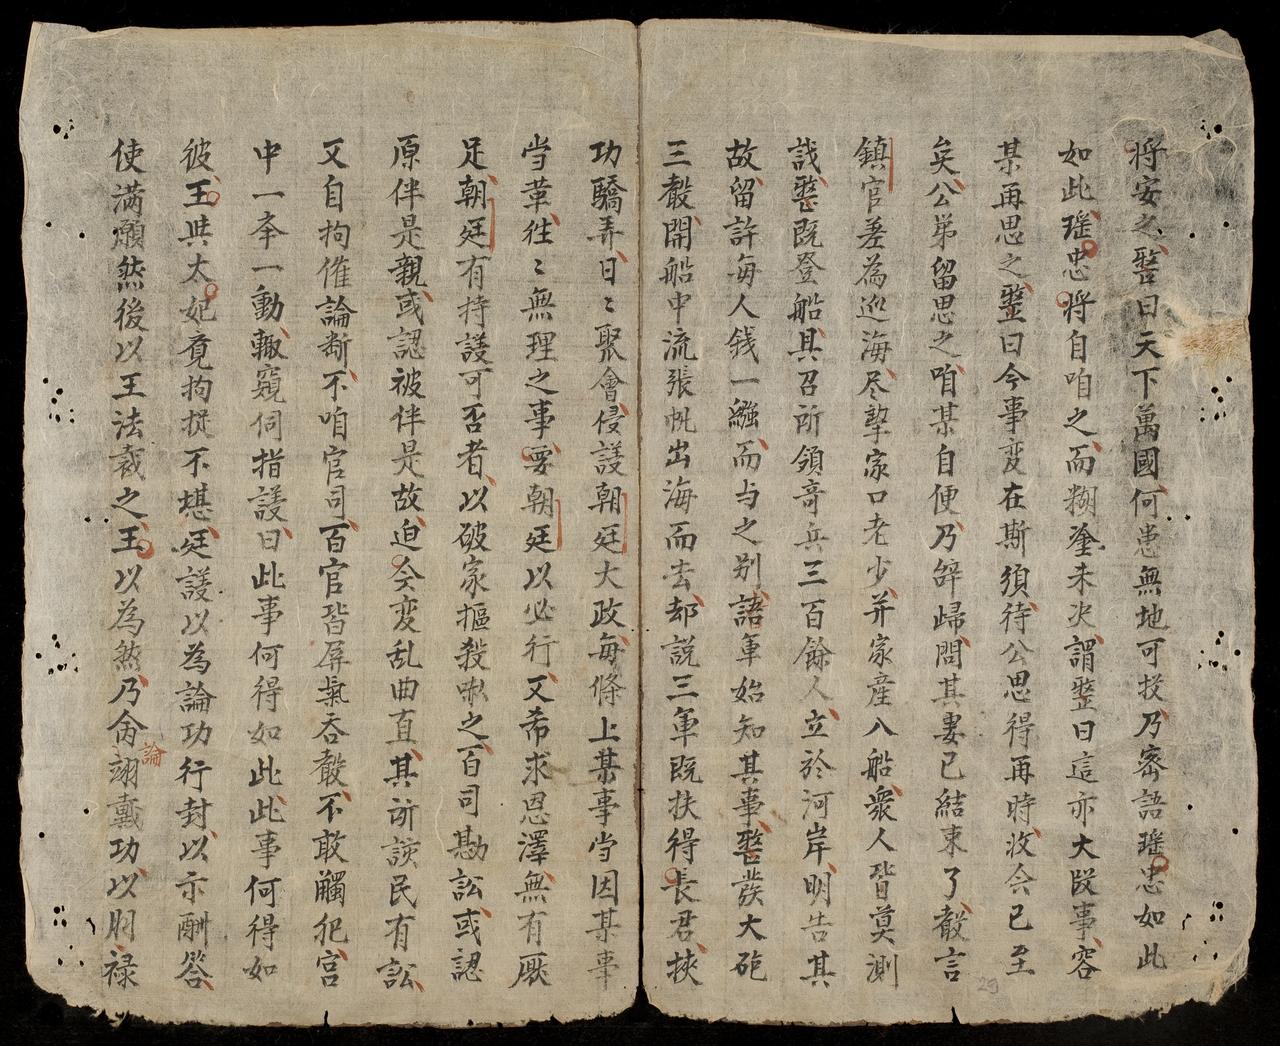 将安之、𬋩曰天下萬國何患無地可投、乃密語瑶忠如此
如此、瑶忠将自咱之、而糊塗未决、謂𬋩曰這亦大段事、容
某再思之、𬋩曰今事变在斯須、待公思得再時、汝会已至
矣、公弟留思之、咱某自便、乃辞歸、問其妻已結束了、𣪊言
鎮官差為巡海、尽挈家口老少、并家産入船、衆人皆莫測
識、𬋩既登船、具召所領奇兵三百餘人、立於河岸、明告其
故、留許每人錢一繦、而与之别、語軍始知其事、𬋩發大砲
三𣪊、開船中流張帆出海而去、却説三軍既扶得長君、挾
功驕弄、日〻聚會侵議朝廷大政、每條上某事当因某事
当革、往〻無理之事、要朝廷以必行、又希求恩澤、無有厭
足、朝廷有持議可否者、以破家摳殺嚇之、百司勘訟、或認
原伴是親、或認被伴是故、迫会变乱曲直、其所該民有訟、
又自拘催論断、不咱官司、百官皆屏氣吞𣪊、不敢觸犯、宮
中一夲一動、輙窺伺指議、曰此事何得如此、此事何得如
彼、王與太妃竟拘捉不堪、廷議以為論功行封、以示酬答、
使満願然後以王法裁之、王以為然、乃命翊戴功、以朋禄
論
29